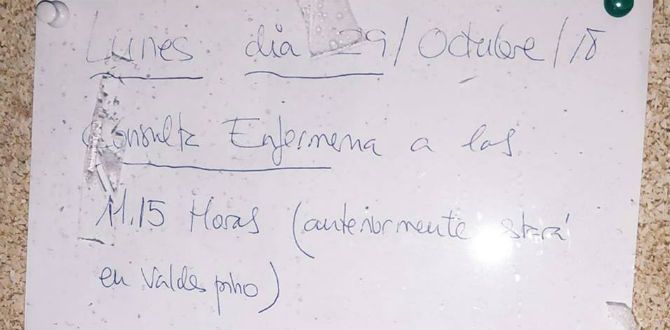 Lunes dia 29/Octubre/18
Consulta Enfermeria a las
11.15 Horas (anteriormente stará
en Valdespino)